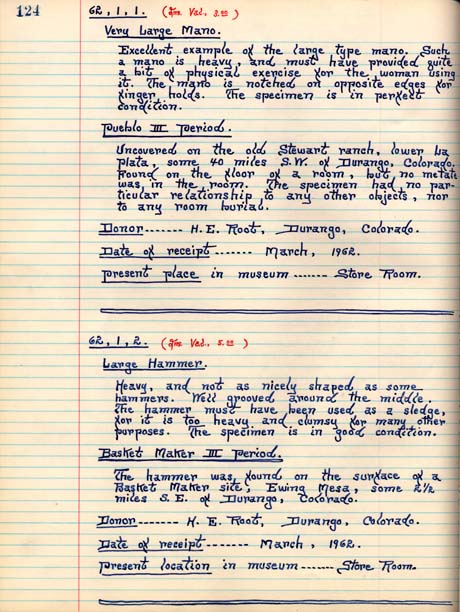 124
62,1,1. (Ins. Val. 3.00)
Very Large Mano.
Excellent example of the large type mano. Such
a mano is heavy, and must have provided quite
a bit of physical exercise for the woman using
it. The mano is notched on opposite edges for
finger holds. The specimen is in perfect
condition.
Pueblo III Period.
Uncovered on the old Stewart ranch, lower La
Plata, some 40 miles S.W. of Durango, Colorado.
Found on the floor of a room, but no metate
was in the room. The specimen had no par-
ticular relationship to any other objects, nor
to any room burial.
Donor------- H. E. Root, Durango, Colorado.
Date of receipt------- March, 1962.
Present place in museum ------ Store Room.
62,1,2. (Ins. Val. 5.00)
Large Hammer.
Heavy, and not as nicely shaped as some
hammers. Well grooved around the middle.
The hammer must have been used as a sledge,
for it is too heavy and clumsy for many other
purposes. The specimen is in good condition.
Basket Maker III Period.
The hammer was found on the surface of a
Basket Maker site, Ewing Mesa, some 2 1/2
miles S.E. of Durango, Colorado.
Donor------- H. E. Root, Durango, Colorado.
Date of receipt------- March, 1962.
Present location in museum ------ Store Room.